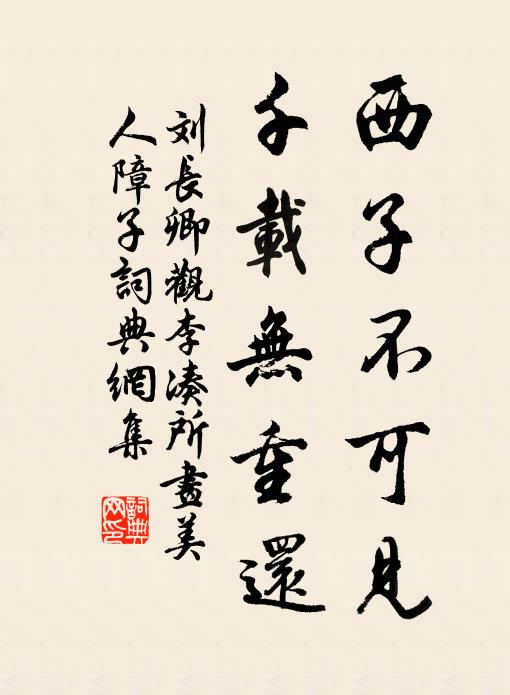 西子不可見
千載無重還
刘長卿觀李凑所畫美
人障子詞典網集
詞典
网印